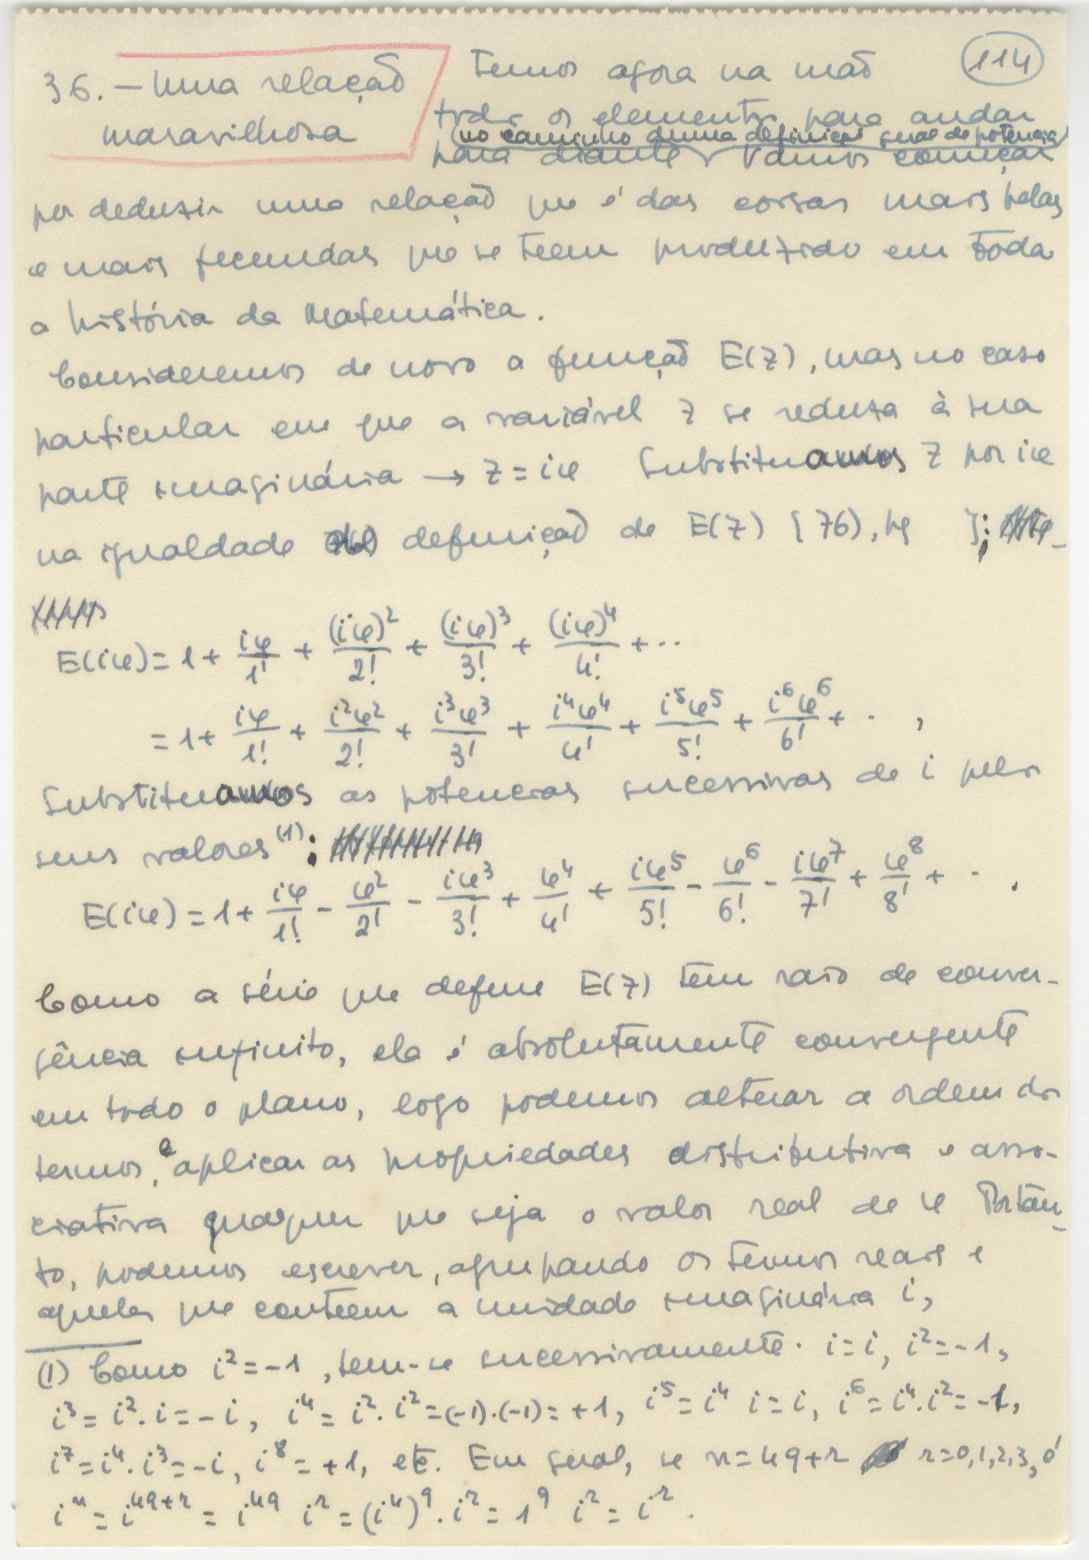 114
36. — Uma relação
maravilhosa
Temos agora na mão
todos os elementos para andar
(no caminho duma definição geral de potência)
para diante. Vamos começar
por deduzir uma relação que é das coisas mais belas
e mais fecundas que se teem produzido em toda
a história da Matemática.
Consideremos de novo a função E(z), mas no caso
particular em que a variável z se reduza à sua
parte imaginária → z = iφ Substituamos z por iφ
na igualdade definição de E(z) [76), pg ];
E(iφ) = 1 + iφ/1! + (iφ)²/2! + (iφ)³/3! + (iφ)⁴/4! + ··
= 1 + iφ/1! + i²φ²/2! + i³φ³/3! + i⁴φ⁴/4! + i⁵φ⁵/5! + i⁶φ⁶/6! + · ,
Substituamos as potencias sucessivas de i pelos
seus valores⁽¹⁾:
E(iφ) = 1 + iφ/1! - φ²/2! - iφ³/3! + φ⁴/4! + iφ⁵/5! - φ⁶/6! - iφ⁷/7! + φ⁸/8! + · .
Como a série que define E(z) tem raio de conver-
gência infinito, ela é absolutamente convergente
em todo o plano, logo podemos alterar a ordem dos
termos, e aplicar as propriedades distributiva e asso-
ciativa qualquer que seja o valor real de φ Portan-
to, podemos escrever, agrupando os termos reais e
aqueles que conteem a unidade imaginária i,
(1) Como i² = -1, tem-se sucessivamente· i = i, i² = -1,
i³ = i².i = -i, i⁴ = i².i² = (-1).(-1) = +1, i⁵ = i⁴ i = i, i⁶ = i⁴.i² = -1,
i⁷ = i⁴.i³ = -i, i⁸ = +1, etc. Em geral, se n = 4q+r r = 0,1,2,3, é
iⁿ = i⁴q⁺ʳ = i⁴q iʳ = (i⁴)q.iʳ = 1q iʳ = iʳ.